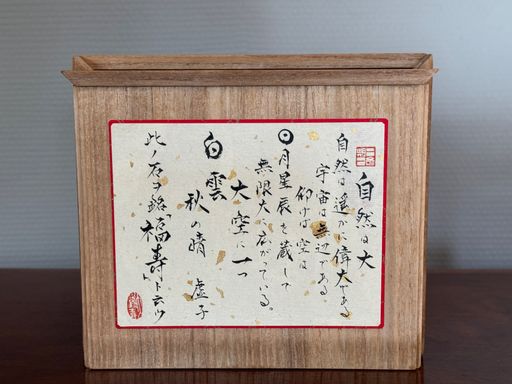 自然は大
自然は遥かに偉大である
宇宙は無辺である
仰げば空は
日月星辰を蔵して
無限大に広がっている。
大空に一つ
白雲
秋の晴 虚子
此ノ石ヲ銘「福壽」ト云フ